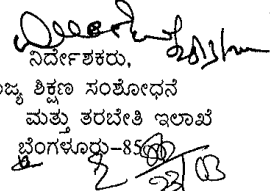 ನಿರ್ದೇಶಕರು,
ಜ್ಯ ಶಿಕ್ಷಣ ಸಂಶೋಧನೆ
ಮತ್ತು ತರಬೇತಿ ಇಲಾಖೆ
ಬೆಂಗಳೂರು-85